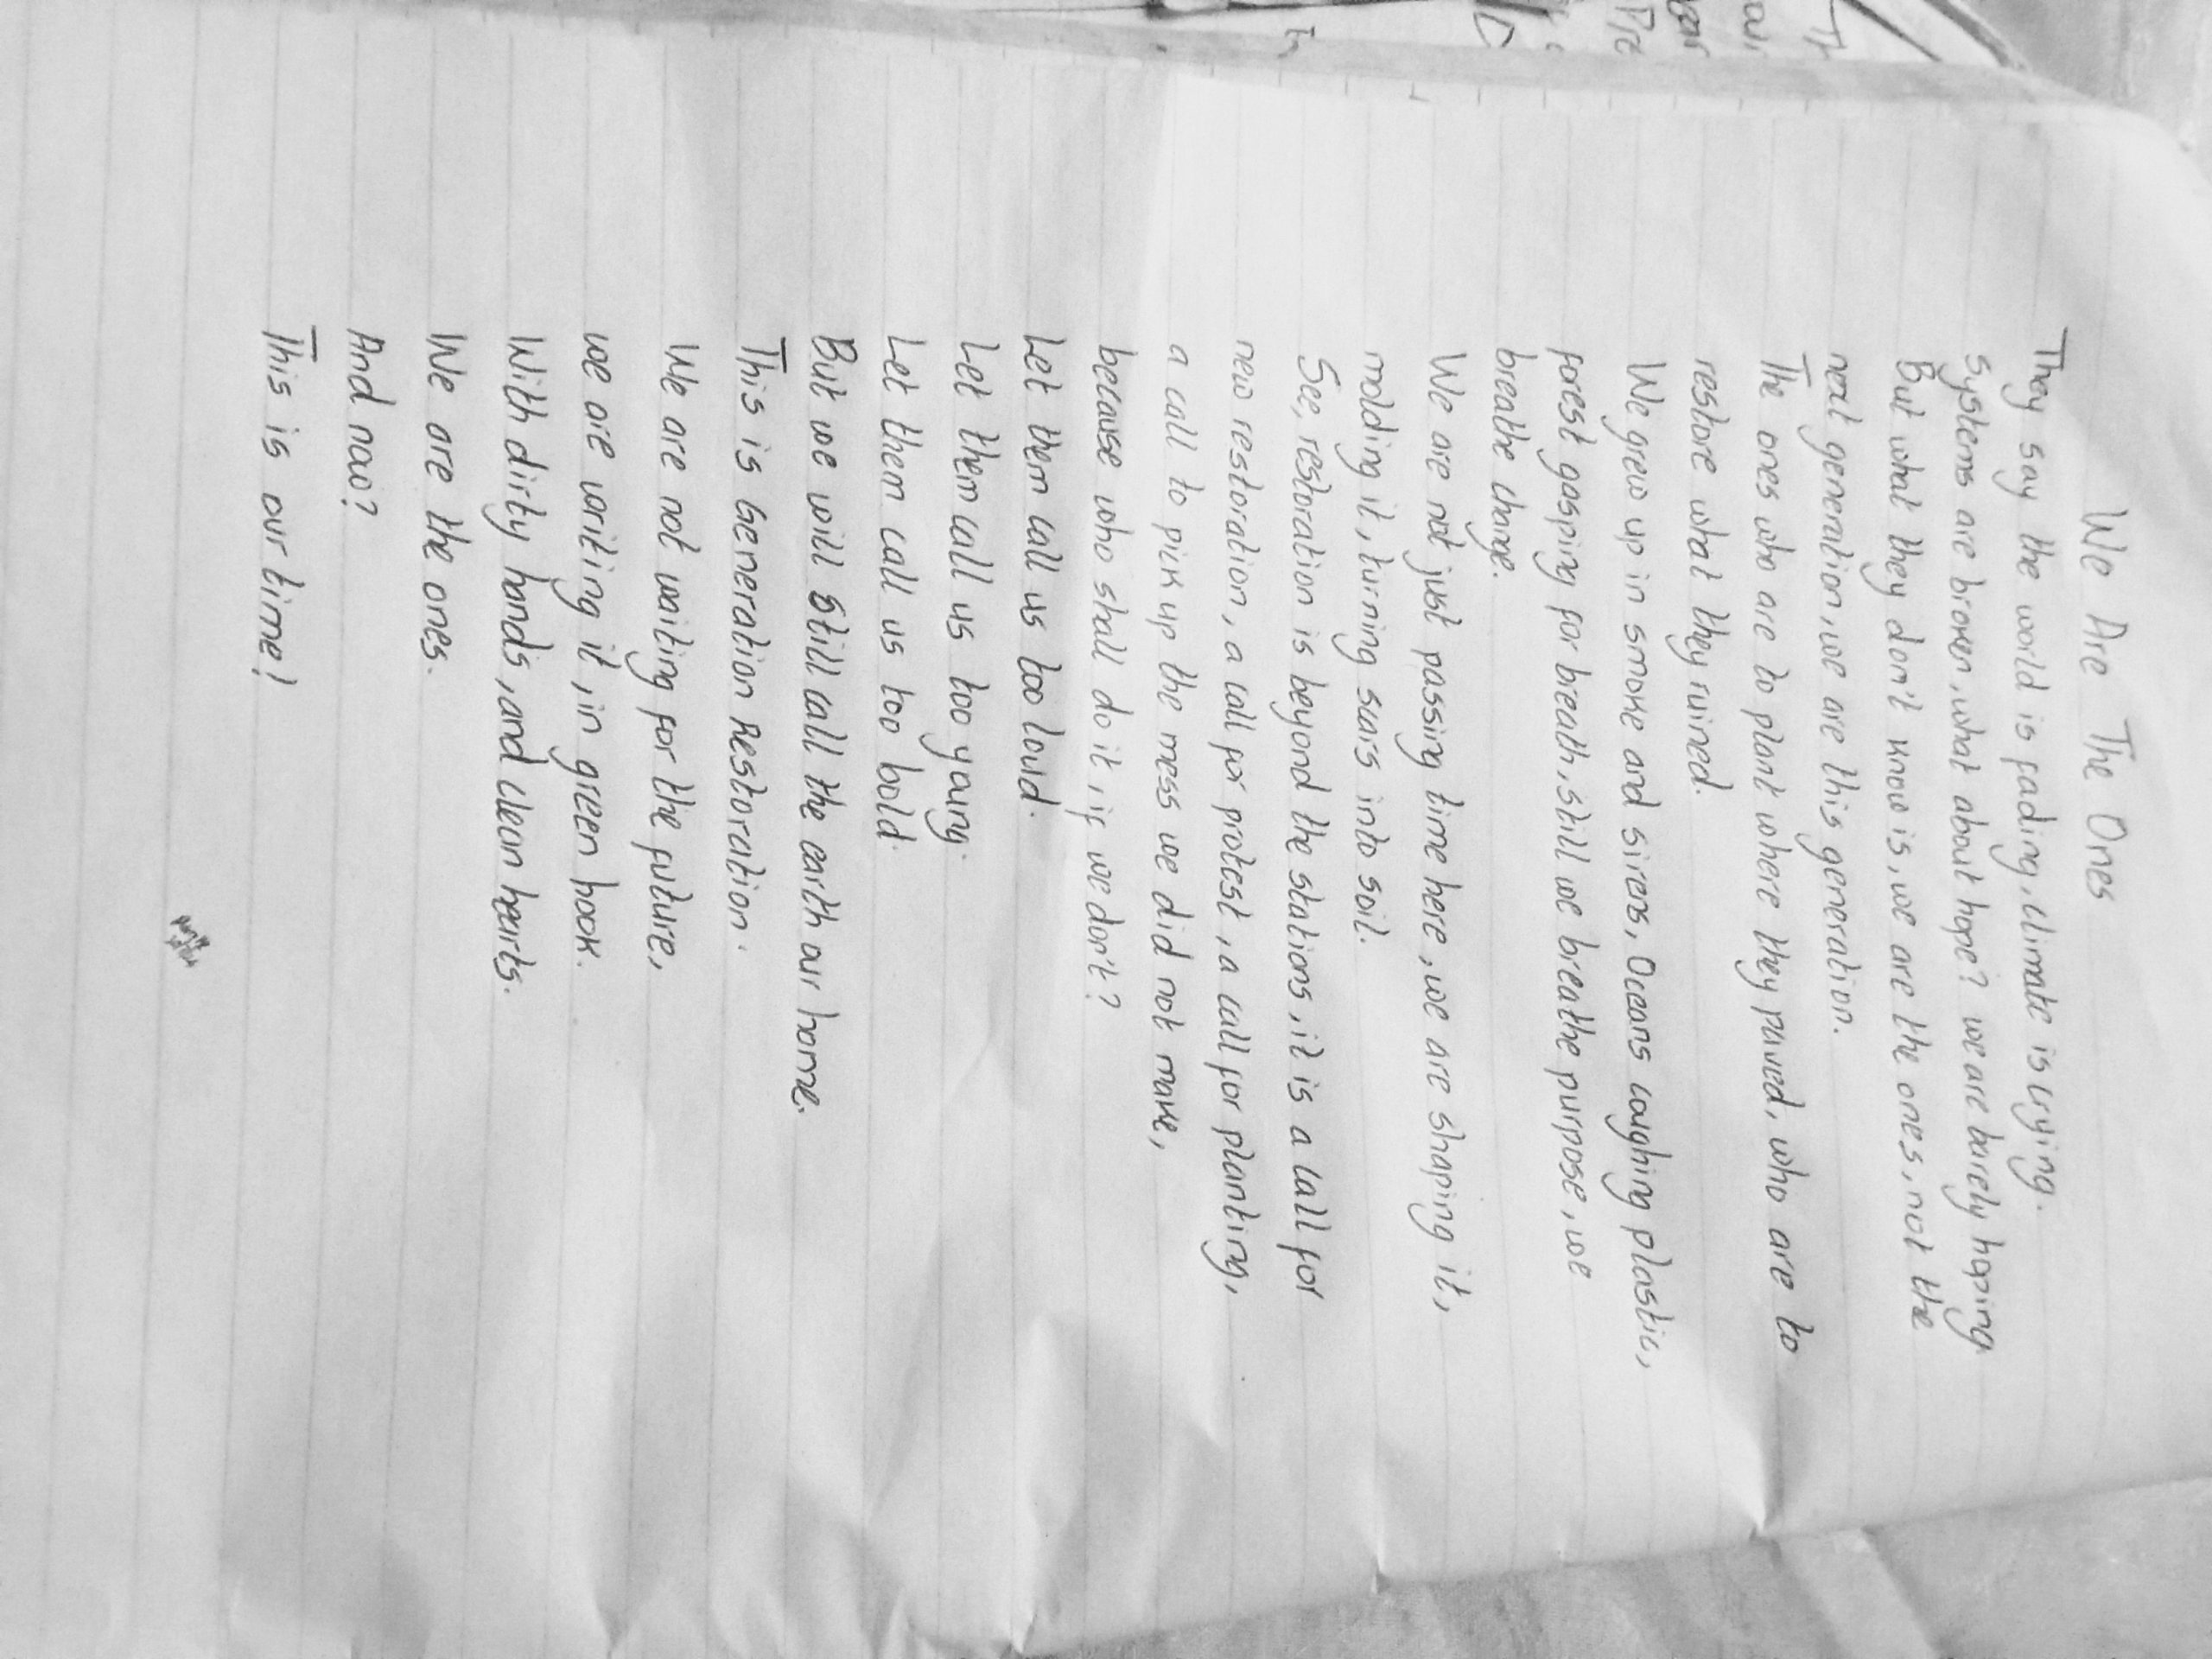 We Are The Ones
They say the world is fading, climate is crying.
Systems are broken, what about hope? we are barely hoping
But what they don't know is, we are the ones, not the
next generation, we are this generation.
The ones who are to plant where they paved, who are to
restore what they ruined.
We grew up in smoke and sirens, Oceans coughing plastic,
forest gasping for breath, still we breathe purpose, we
breathe change.
We are not just passing time here, we are shaping it,
molding it, turning scars into soil.
See, restoration is beyond the stations, it is a call for
new restoration, a call for protest, a call for planting,
a call to pick up the mess we did not make,
because who shall do it, if we don't?
Let them call us too loud.
Let them call us too young.
Let them call us too bold.
But we will still call the earth our home.
This is Generation Restoration.
We are not waiting for the future,
we are writing it, in green hook.
With dirty hands, and clean hearts.
We are the ones.
And now?
This is our time!